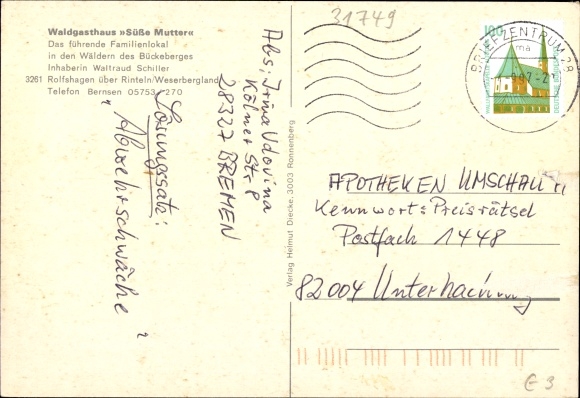 31749
Waldgasthaus »Süße Mutter«
Das führende Familienlokal
in den Wäldern des Bückeberges
Inhaberin Waltraud Schiller
3261 Rolfshagen über Rinteln/Weserbergland
Telefon Bernsen 05753/270
Lösungssatz:
"Abwehrschwäche"
Abs; Irina Udovina
Kölner Str. 8
28327 BREMEN
Verlag Helmut Drecke, 3003 Ronnenberg
100
BRIEFZENTRUM 28
ma
APOTHEKEN UMSCHAU"
Kennwort: Preisrätsel
Postfach 1448
82004 Unterhaching
E3